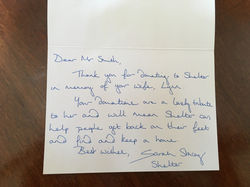 Dear Mr Smith,
Thank you for donating to Shelter
in memory of your wife, Lynn
Your donations are a lovely tribute
to her and will mean Shelter can
help people get back on their feet
and find and keep a home
Best wishes, Sarah
Shelter